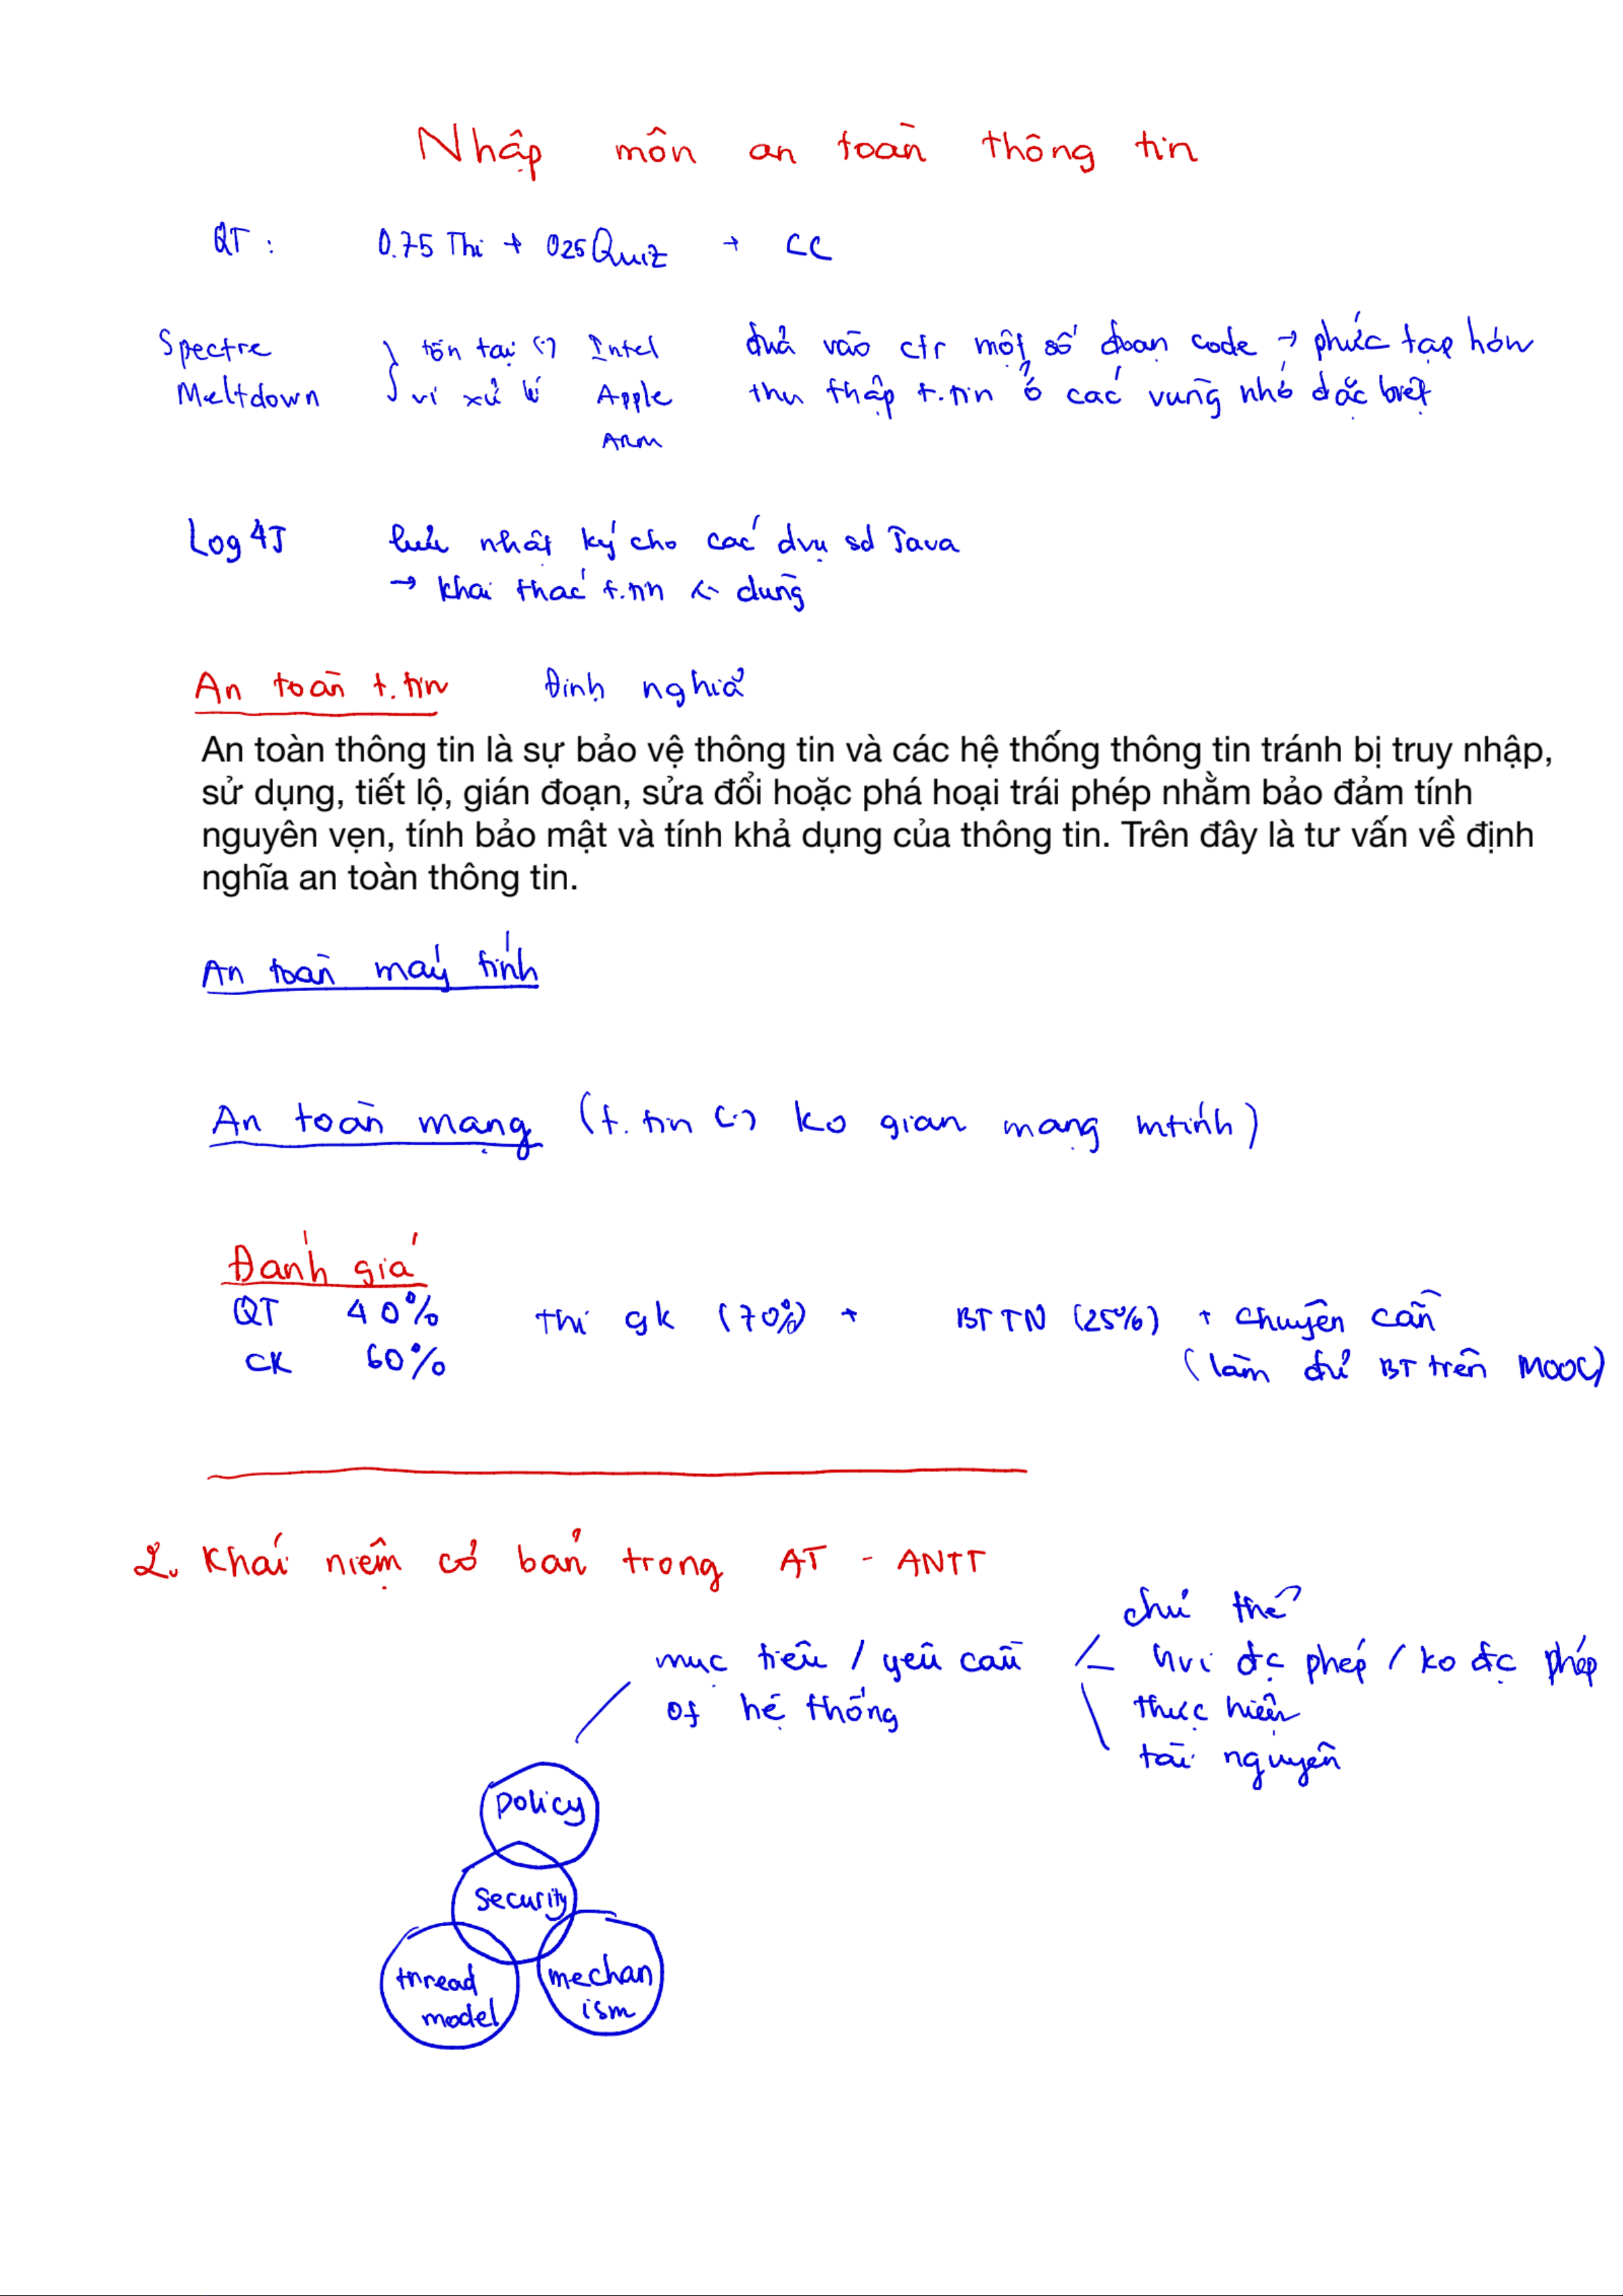 Nhập môn an toàn thông tin
QT : 0.75 Thi + 025 Quiz + CC
Spectre } tồn tại (.) Intel đưa vào ctr một số đoạn code → phức tạp hơn
Meltdown vi xử lí Apple thu thập t.tin ở các vùng nhớ đặc biệt
ARM
Log4J lưu nhật ký cho các dvụ sd Java
→ khai thác t.tin ← dùng
An toàn t.tin Định nghĩa
An toàn thông tin là sự bảo vệ thông tin và các hệ thống thông tin tránh bị truy nhập,
sử dụng, tiết lộ, gián đoạn, sửa đổi hoặc phá hoại trái phép nhằm bảo đảm tính
nguyên vẹn, tính bảo mật và tính khả dụng của thông tin. Trên đây là tư vấn về định
nghĩa an toàn thông tin.
An toàn máy tính
An toàn mạng (t.tin (.) ko gian mạng mtính)
Đánh giá
QT 40% thi gk (70%) + BTTN (25%) + chuyên cần
CK 60% (làm đủ BT trên MOOC)
2. Khái niệm cơ bản trong AT - ANTT
chủ thể
mục tiêu / yêu cầu hvi đc phép / ko đc phép
of hệ thống thực hiện
tài nguyên
policy
security
thread mechan
model ism